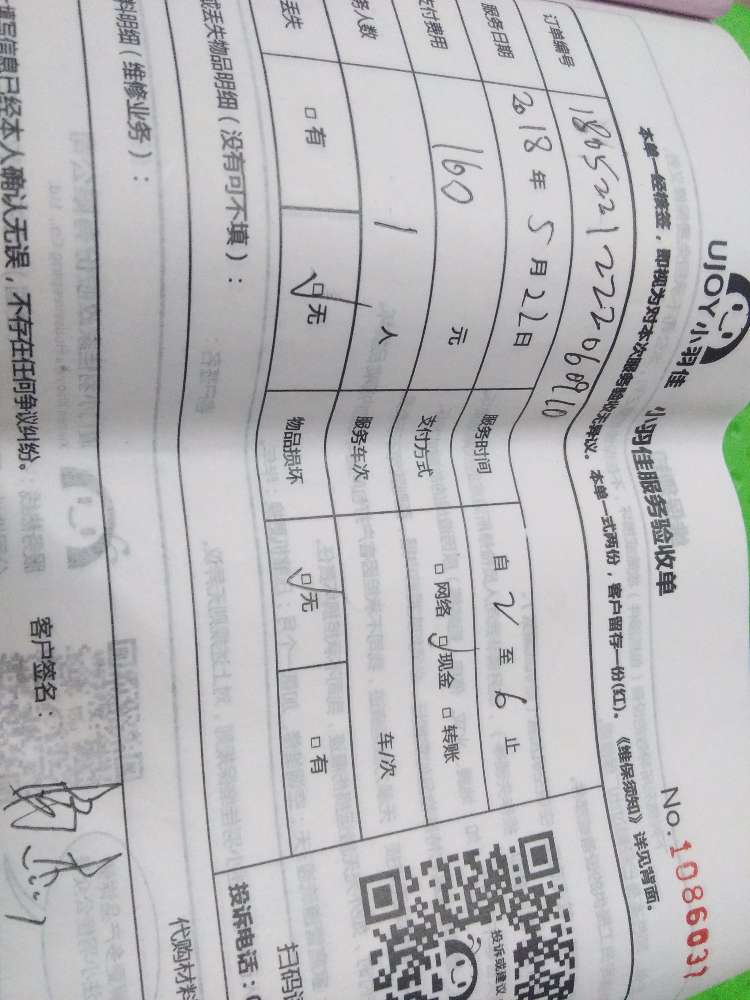 UJOY小羽佳
小羽佳服务验收单
No.1086031
本单一经签签，即视为对本次服务验收无异议。本单一式两份，客户留存一份(红)。《维保须知》详见背面。
订单编号
服务日期 2018年5月22日 服务时间 自2至6止
支付费用 160元 支付方式 □网络 ☑现金 □转账
务人数 1人 服务车次 车/次
丢失 □有 ☑无 物品损坏 ☑无 □有
或丢失物品明细（没有可不填）：
料明细（维修业务）：
代购材料
填写信息已经本人确认无误，不存在任何争议纠纷。
客户签名：
投诉或建议
扫码
投诉电话：